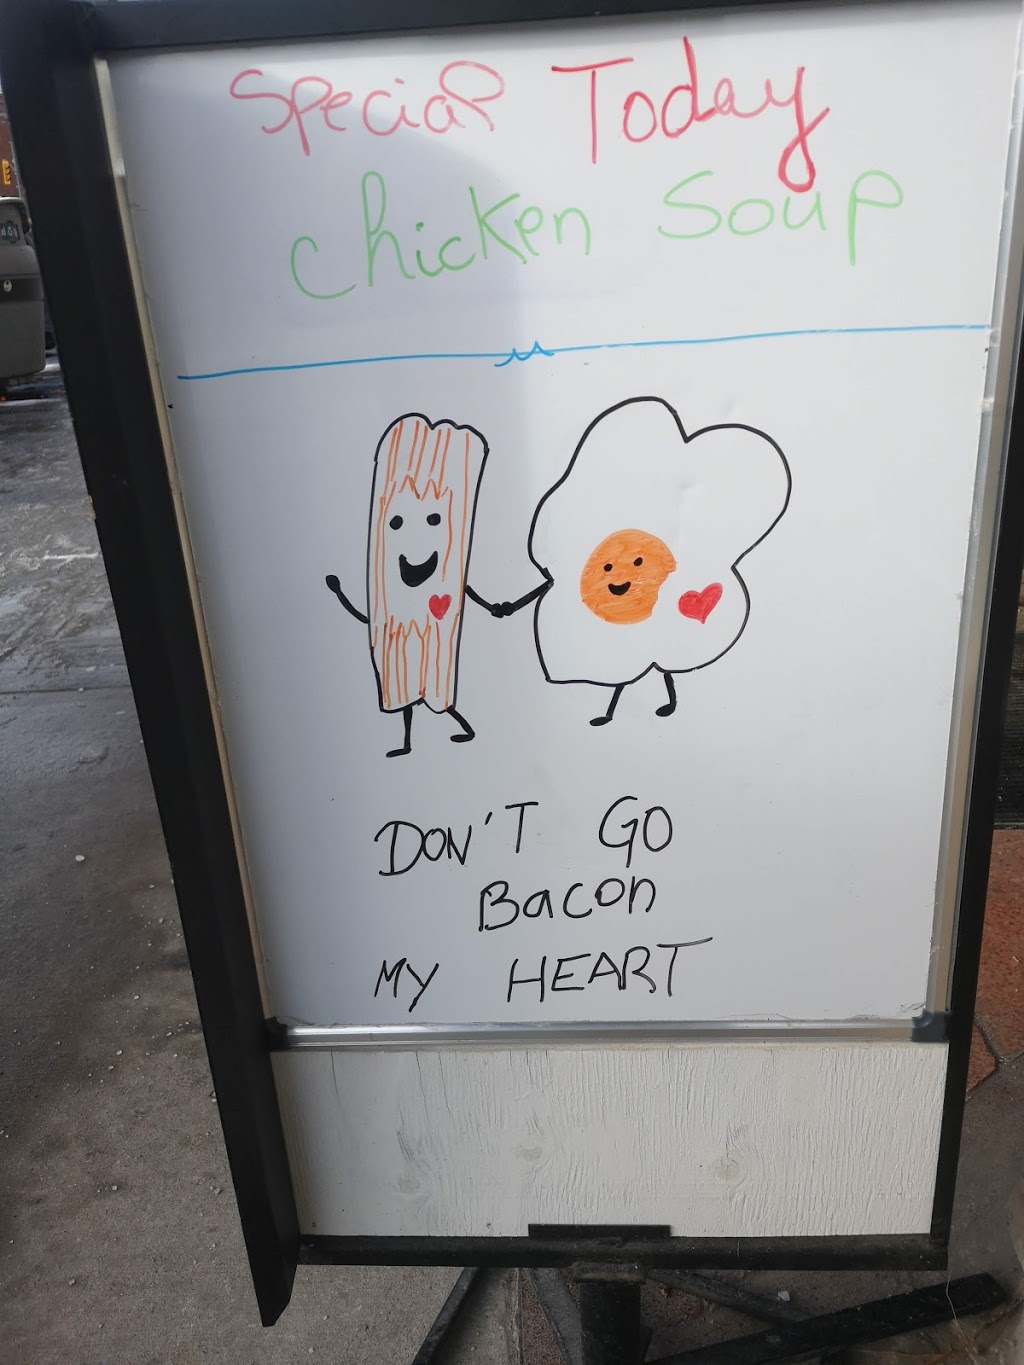 Special Today
chicken Soup
DON'T GO
Bacon
MY HEART